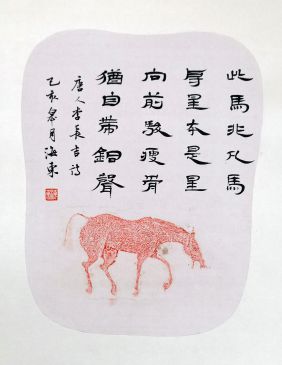 此馬非凡馬
房星本是星
向前敲瘦骨
猶自帶銅聲
唐人李長吉詩
乙亥皋月海東